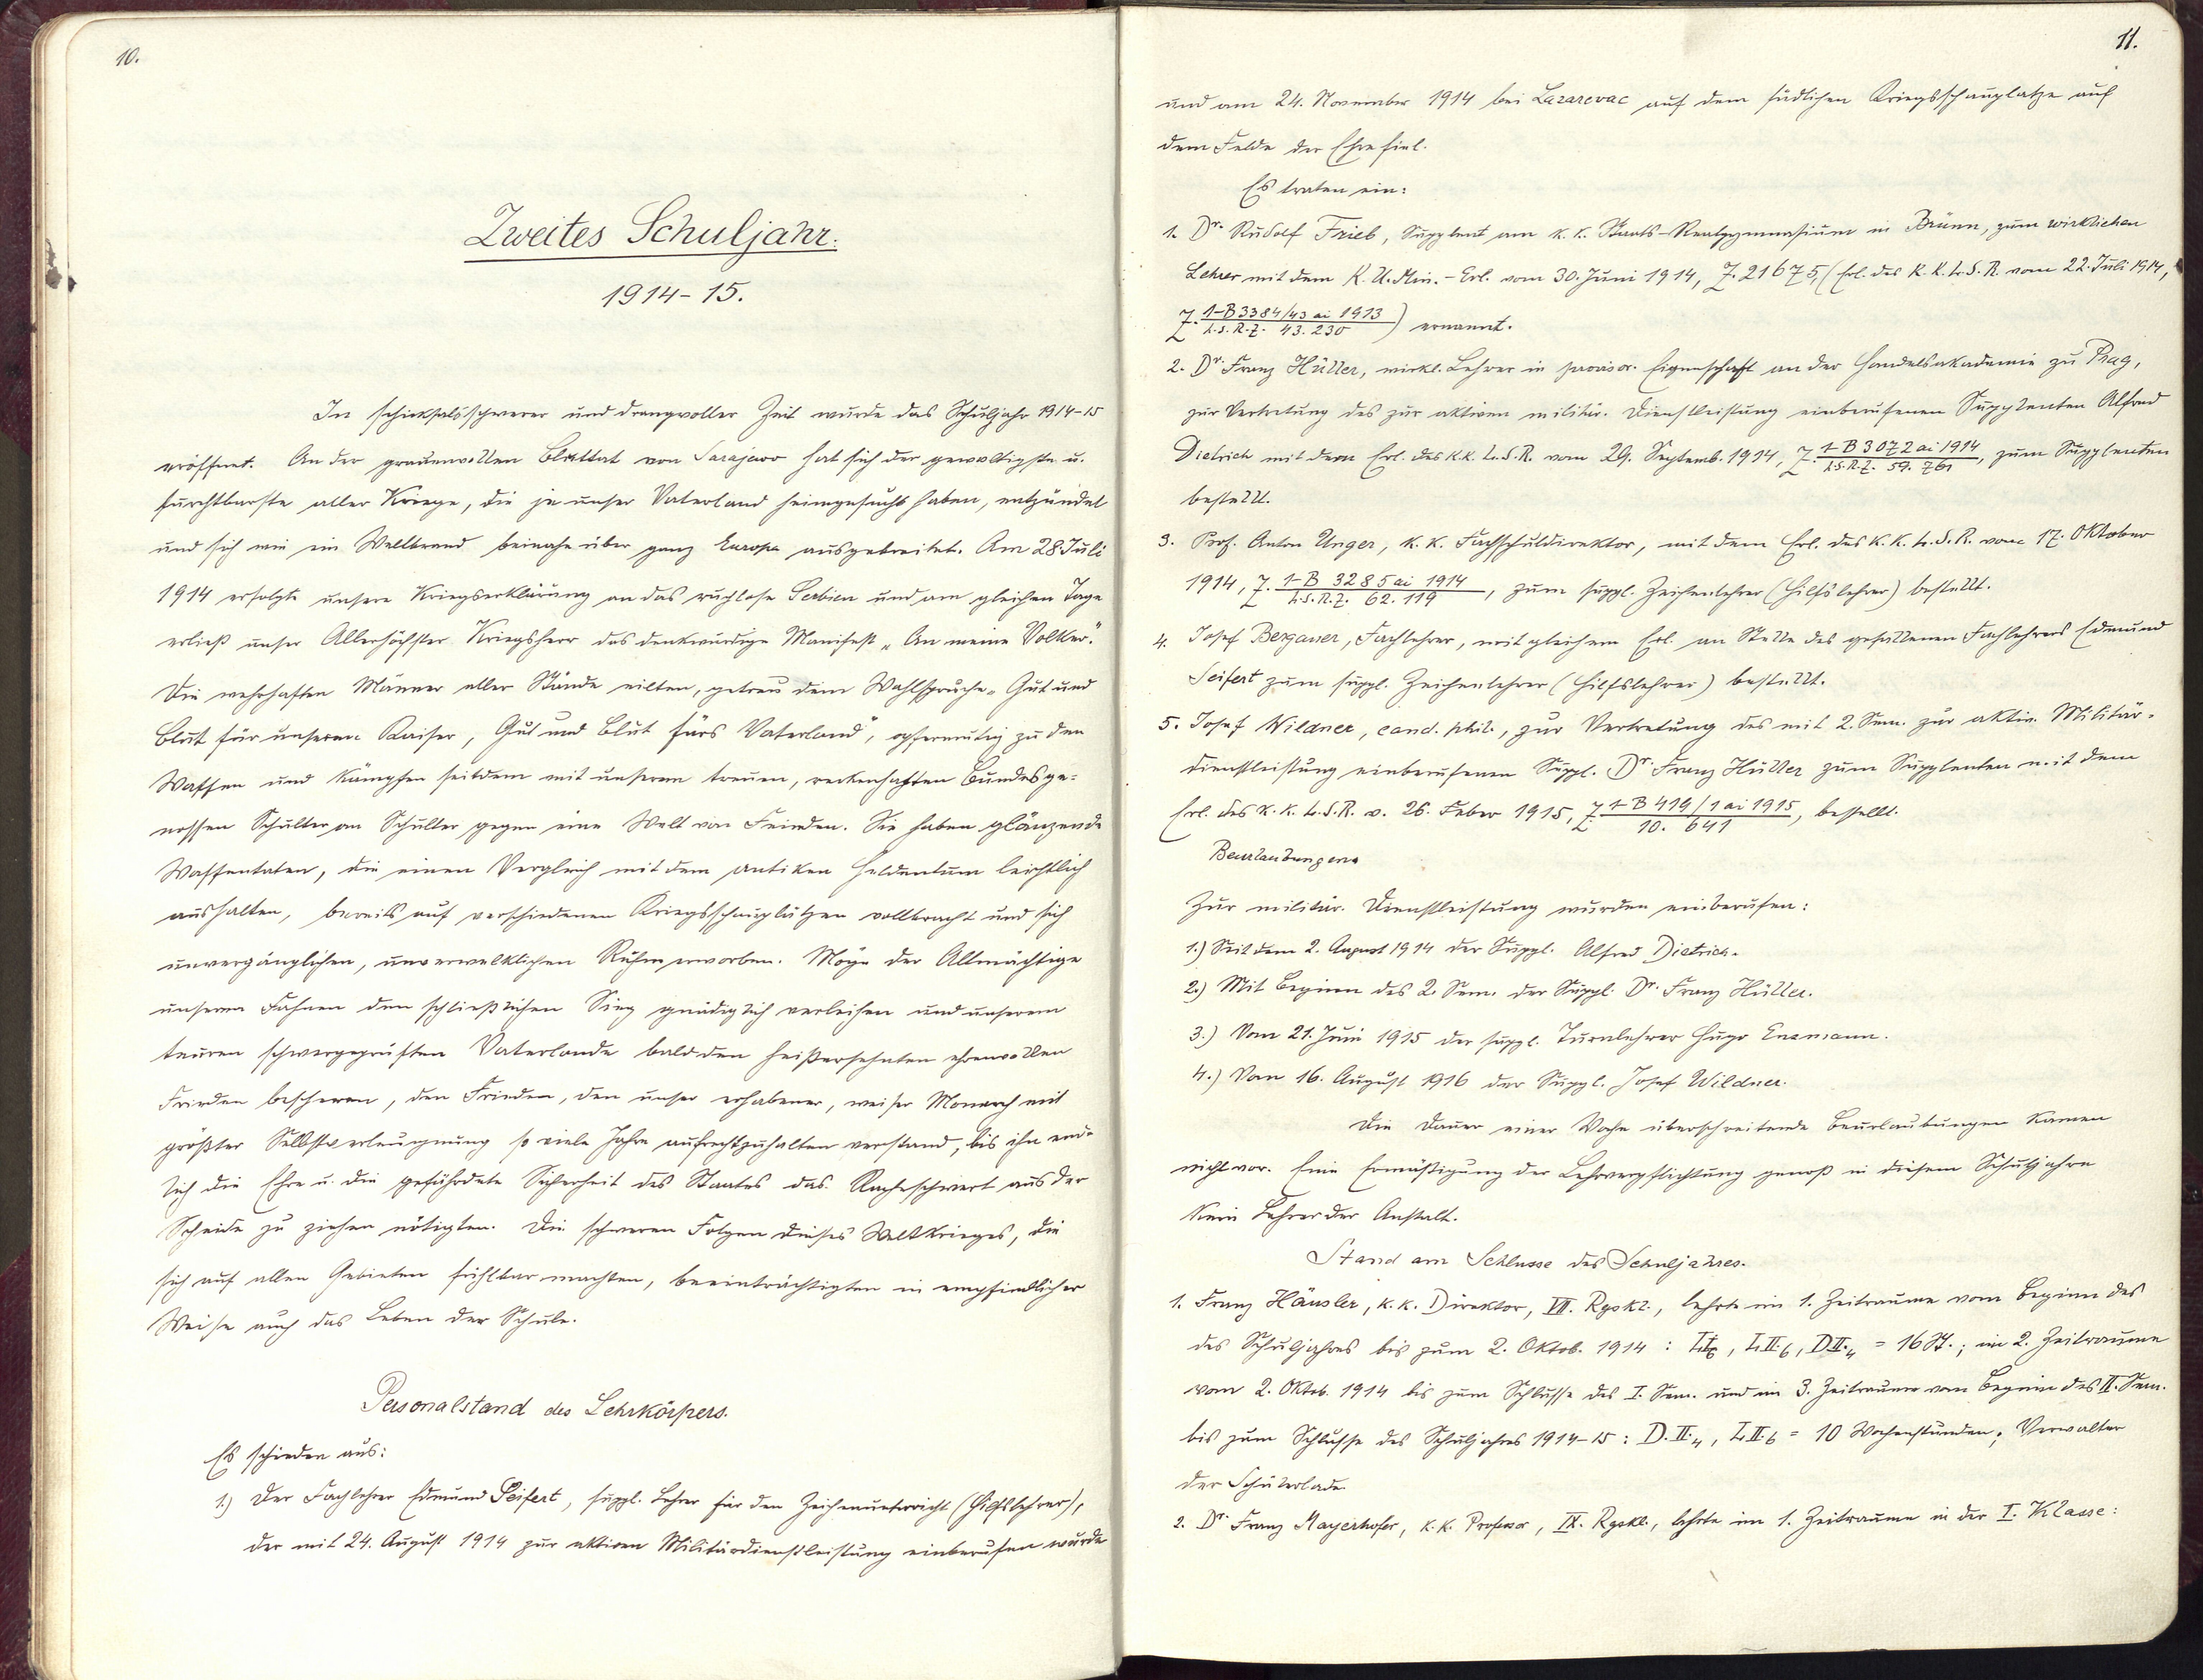 10.
Zweites Schuljahr.
1914-15.
In schicksalsschwerer und drangvoller Zeit wurde das Schuljahr 1914-15
eröffnet. An der grauenvollen Bluttat von Sarajewo hat sich der gewaltigste u.
furchtbarste aller Kriege, die je unser Vaterland heimgesucht haben, entzündet
und sich wie ein Weltbrand beinahe über ganz Europa ausgebreitet. Am 28. Juli
1914 erfolgte unsere Kriegserklärung an das ruchlose Serbien und am gleichen Tage
erließ unser Allerhöchster Kriegsherr das denkwürdige Manifest „An meine Völker."
Die wehrhaften Männer aller Stände eilten, getreu dem Wahlspruche „Gut und
Blut für unseren Kaiser, Gut und Blut fürs Vaterland", opfermutig zu den
Waffen und kämpfen seitdem mit unserem treuen, reckenhaften Bundesge-
nossen Schulter an Schulter gegen eine Welt von Feinden. Sie haben glänzende
Waffentaten, die einen Vergleich mit dem antiken Heldentum leichtlich
aushalten, bereits auf verschiedenen Kriegsschauplätzen vollbracht und sich
unvergänglichen, unverwelklichen Ruhm erworben. Möge der Allmächtige
unseren Fahnen den schließlichen Sieg gnädiglich verleihen und unserem
teuren schwergeprüften Vaterlande bald den heißersehnten ehrenvollen
Frieden bescheren, den Frieden, den unser erhabener, weiser Monarch mit
größter Selbstverleugnung so viele Jahre aufrechtzuhalten verstand, bis ihn end-
lich die Ehre u. die gefährdete Sicherheit des Staates das Racheschwert aus der
Scheide zu ziehen nötigten. Die schweren Folgen dieses Weltkrieges, die
sich auf allen Gebieten fühlbar machten, beeinträchtigten in empfindlicher
Weise auch das Leben der Schule.
Personalstand des Lehrkörpers.
Es schieden aus:
1.) Der Fachlehrer Edmund Seifert, suppl. Lehrer für den Zeichenunterricht (Hilfslehrer),
der mit 24. August 1914 zur aktiven Militärdienstleistung einberufen wurde
11.
und am 24. November 1914 bei Lazarevac auf dem südlichen Kriegsschauplatze auf
dem Felde der Ehre fiel.
Es traten ein:
1. Dr. Rudolf Frieb, Supplent am k. k. Staats-Realgymnasium in Brünn, zum wirklichen
Lehrer mit dem K. U. Min.-Erl. vom 30. Juni 1914, Z. 21675, (Erl. des k. k. L. S. R. vom 22. Juli 1914,
Z. 1-B 3384/43 ai 1913 / L. S. R. Z. 43.230) ernannt.
2. Dr. Franz Hüller, wirkl. Lehrer in provisor. Eigenschaft an der Handelsakademie zu Prag,
zur Vertretung des zur aktiven militär. Dienstleistung einberufenen Supplenten Alfred
Dietrich mit dem Erl. des k. k. L. S. R. vom 29. Septemb. 1914, Z. 1-B 3072 ai 1914 / L. S. R. Z. 59.761, zum Supplenten
bestellt.
3. Prof. Anton Unger, k. k. Fachschuldirektor, mit dem Erl. des k. k. L. S. R. vom 17. Oktober
1914, Z. 1-B 3285 ai 1914 / L. S. R. Z. 62.119, zum suppl. Zeichenlehrer (Hilfslehrer) bestellt.
4. Josef Bergauer, Fachlehrer, mit gleichem Erl. an Stelle des gefallenen Fachlehrers Edmund
Seifert zum suppl. Zeichenlehrer (Hilfslehrer) bestellt.
5. Josef Wildner, cand. phil., zur Vertretung des mit 2. Sem. zur aktiv. Militär-
dienstleistung einberufenen Suppl. Dr. Franz Hüller zum Supplenten mit dem
Erl. des k. k. L. S. R. v. 26. Feber 1915, Z. 1-B 419/1 ai 1915 / 10.641, bestellt.
Beurlaubungen.
Zur militär. Dienstleistung wurden einberufen:
1.) Seit dem 2. August 1914 der Suppl. Alfred Dietrich.
2.) Mit Beginn des 2. Sem. der Suppl. Dr. Franz Hüller.
3.) Vom 21. Juni 1915 der suppl. Turnlehrer Hugo Ensmann.
4.) Vom 16. August 1916 der Suppl. Josef Wildner.
Die Dauer einer Woche überschreitende Beurlaubungen kamen
nicht vor. Eine Ermäßigung der Lehrverpflichtung genoß in diesem Schuljahre
kein Lehrer der Anstalt.
Stand am Schlusse des Schuljahres.
1. Franz Häusler, k. k. Direktor, VII. Rgskl., lehrte im 1. Zeitraume vom Beginn des
des Schuljahres bis zum 2. Oktob. 1914: L I.6, L II.6, D II.4 = 16 St.; im 2. Zeitraume
vom 2. Oktob. 1914 bis zum Schlusse des I. Sem. und im 3. Zeitraume vom Beginn des II. Sem.
bis zum Schlusse des Schuljahres 1914-15: D. II.4, L II.6 = 10 Wochenstunden; Verwalter
der Schülerlade.
2. Dr. Franz Mayerhofer, k. k. Professor, IX. Rgskl., lehrte im 1. Zeitraume in der I. Klasse: